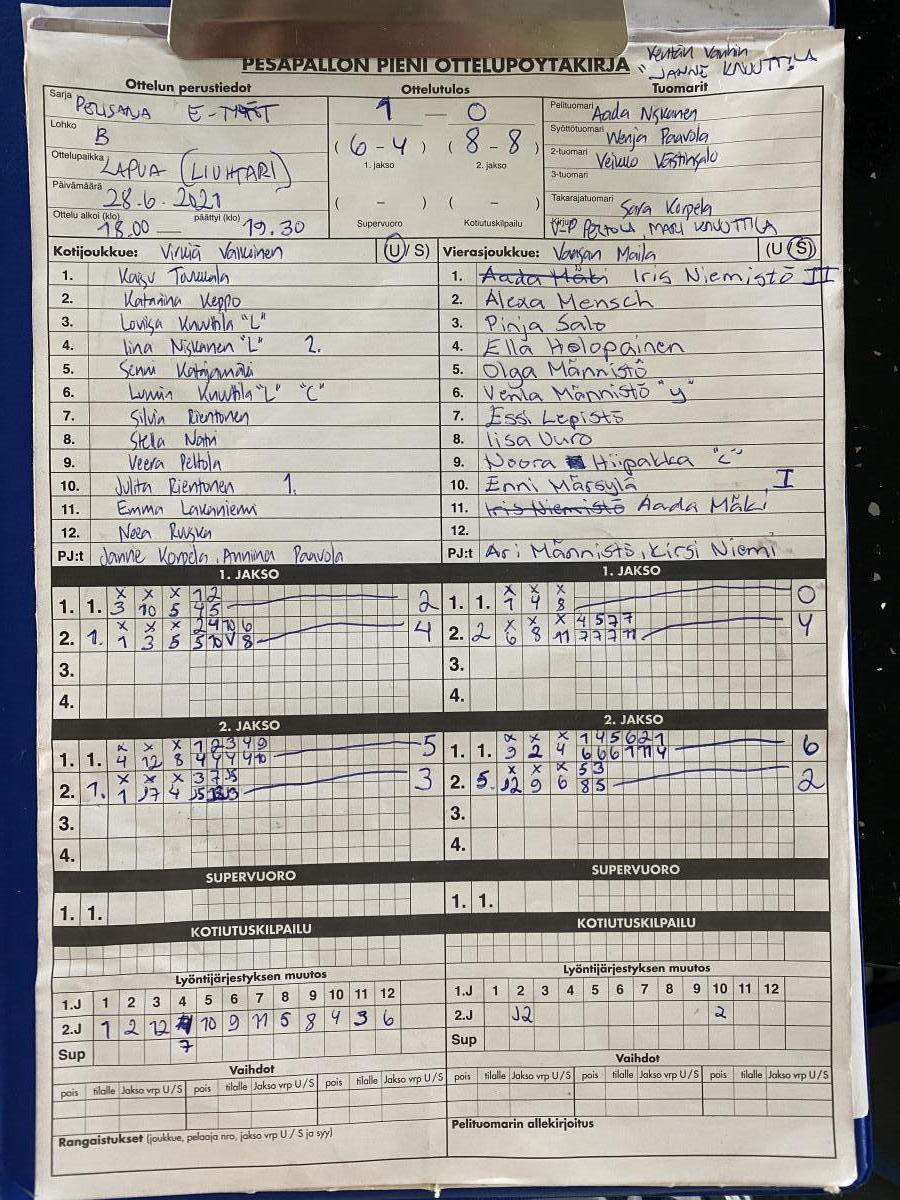 PESÄPALLON PIENI OTTELUPÖYTÄKIRJA
Kentän vanhin
"JANNE KNUUTTILA
Ottelun perustiedot
Ottelutulos
Tuomarit
Sarja
E-TYTÖT
Lohko B
Ottelupaikka LAPUA (LIUHTARI)
Päivämäärä 28.6.2021
Ottelu alkoi (klo) 18.00 — päättyi (klo) 19.30
1 — 0
(6-4) (8-8)
1. jakso 2. jakso
( - ) ( - )
Supervuoro Kotiutuskilpailu
Pelituomari Aada Niskanen
Syöttötuomari Wenja Paavola
2-tuomari Veikko
3-tuomari
Takarajatuomari Sara Korpela
Kirjuri PELTOLA, MARI KNUUTTILA
Kotijoukkue: Virkiä Valkoinen (U/S)
1. Kaisu
2. Katariina Keppo
3. Loviisa Knuuttila "L"
4. Iina Niskanen "L" 2.
5. Senni Katajamäki
6. Lumia Knuuttila "L" "C"
7. Silvia Rientonen
8. Stella Natri
9. Veera Peltola
10. Julita Rientonen 1.
11. Emma Lakaniemi
12. Neea
PJ:t Janne Korpela, Anniina Paavola
Vierasjoukkue: Vaasan Maila (U/S)
1. Aada Mäki Iris Niemistö II
2. Alexa Mensch
3. Pinja Salo
4. Ella Holopainen
5. Olga Männistö
6. Venla Männistö "y"
7. Essi Lepistö
8. Iisa Uuro
9. Noora Hiipakka "C"
10. Enni Märsylä I
11. Iris Niemistö Aada Mäki
12.
PJ:t Ari Männistö, Kirsi Niemi
1. JAKSO
x x x 1 2
1. 1. 3 10 5 4 5 2
x x x 2 4 10 6
2. 1. 1 3 5 5 10 V 8 4
3.
4.
1. JAKSO
x x x
1. 1. 1 4 8 0
x x x 4 5 7 7
2. 2 6 8 11 7 7 7 11 4
3.
4.
2. JAKSO
x x x 1 2 3 4 9
1. 1. 4 12 8 4 4 4 4 10 5
x x x 3 7
2. 1. 1 17 4 3
3.
4.
2. JAKSO
x x x 1 4 5 6 2 1
1. 1. 9 2 4 6 6 6 1 11 4 6
x x x 5 3
2. 5. 12 9 6 8 5 2
3.
4.
SUPERVUORO
1. 1.
SUPERVUORO
1. 1.
KOTIUTUSKILPAILU
KOTIUTUSKILPAILU
Lyöntijärjestyksen muutos
1.J 1 2 3 4 5 6 7 8 9 10 11 12
2.J 1 2 12 7 10 9 11 5 8 4 3 6
Sup
Lyöntijärjestyksen muutos
1.J 1 2 3 4 5 6 7 8 9 10 11 12
2.J 12 2
Sup
Vaihdot
pois tilalle Jakso vrp U/S pois tilalle Jakso vrp U/S pois tilalle Jakso vrp U/S
Vaihdot
pois tilalle Jakso vrp U/S pois tilalle Jakso vrp U/S pois tilalle Jakso vrp U/S
Rangaistukset (joukkue, pelaaja nro, jakso vrp U / S ja syy)
Pelituomarin allekirjoitus